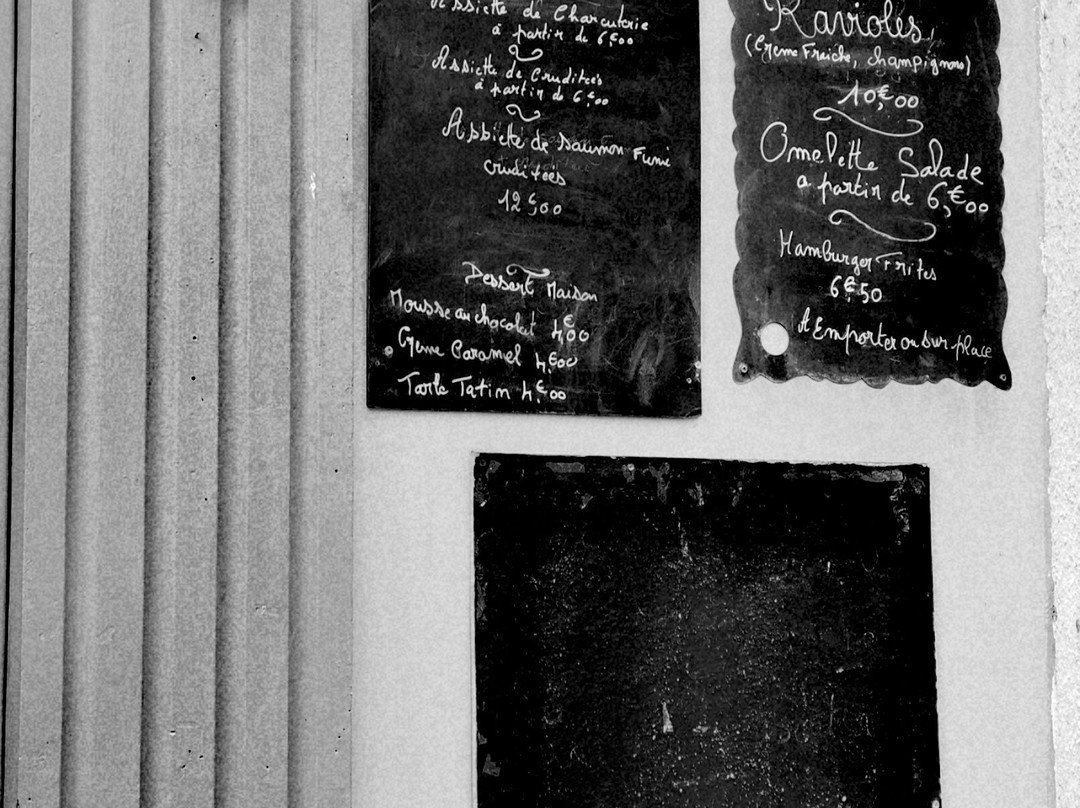 Assiette de Charcuterie
à partir de 6€00
Assiette de Cruditées
à partir de 6€00
Assiette de Saumon Fumé
cruditées
12€00
Dessert Maison
Mousse au chocolat 4€00
Crème Caramel 4€00
Tarte Tatin 4€00
Ravioles
(Crème Fraiche, champignons)
10€00
Omelette Salade
a partir de 6,€00
Hamburger Frites
6€50
A Emporter ou sur place